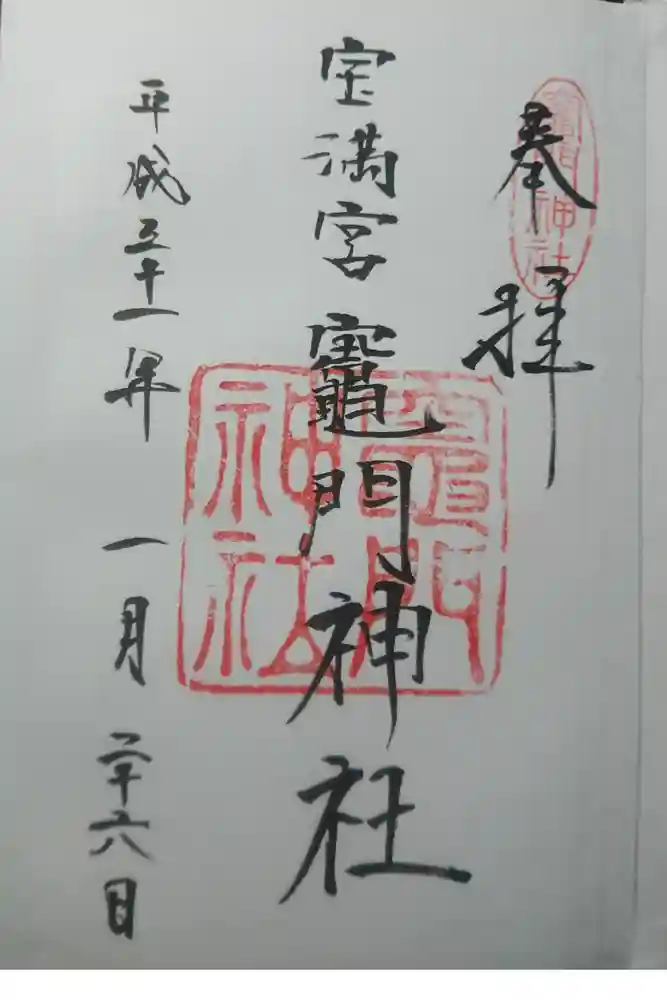 奉拝
竈門神社
宝満宮 竈門神社
竈門神社
平成三十一年 一月 二十六日